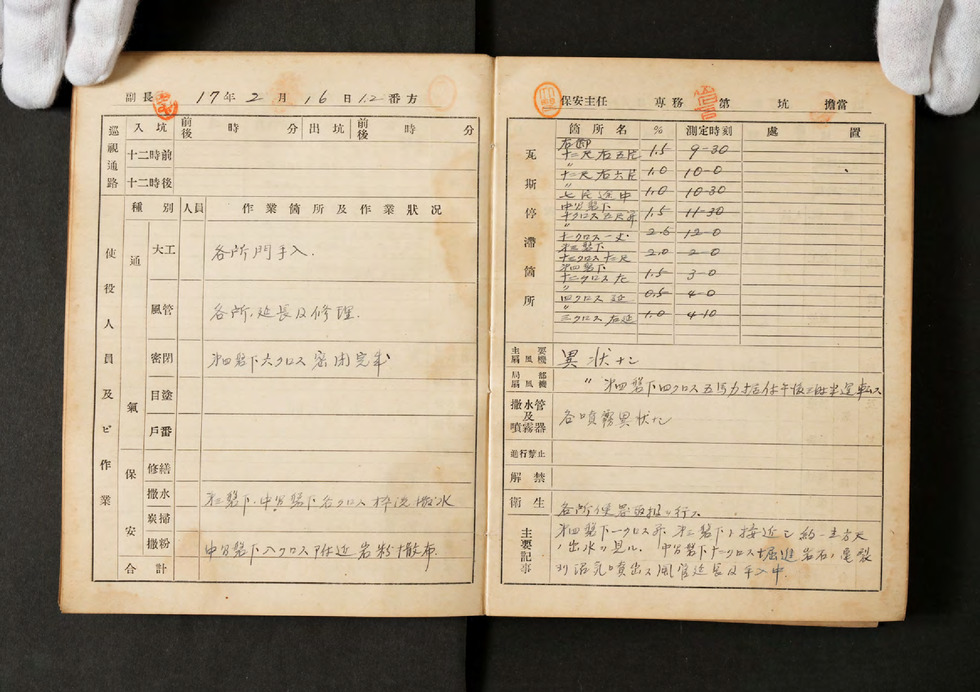 副長 17年2月16日12番方
巡視通路
入坑 前後 時 分 出坑 前後 時 分
十二時前
十二時後
使役人員及ビ作業
種別 人員 作業箇所及作業狀況
通氣
大工 各所門手入.
風管 各所延長及修理.
密閉 第四盤下六クロス密閉完成
目塗
戶番
保安
修繕
撒水 第三盤下、中 盤下各クロス枠洗撒水
炭掃
撒粉 中 盤下入クロス附近岩粉撒布
合計
保安主任 専務 第 坑 擔當
瓦斯停滯箇所
箇所名 % 測定時刻 處置
右卸
十二尺右五片 1.5 9-30
〃
十二尺右六片 1.0 10-0
〃
七片途中 1.0 10-30
中 盤下
十クロス五尺昇 1.5 11-30
十一クロス一丈 2.6 12-0
第三盤下
十二クロス十二尺 2.0 2-0
第四盤下
十二クロス 1.5 3-0
〃
四クロス延 0.5 4-0
〃
三クロス右延 1.0 4-10
主要扇風機 異狀ナシ
局部扇風機 〃 第四盤下四クロス五馬力 午後二時半運転ス
撒水管及噴霧器 各噴霧異狀ナシ
進行禁止
解禁
衛生 各所便器取扱ヲ行フ
主要記事 第四盤下一クロス昇、第三盤下ニ接近シ約一立方尺
ノ出水ヲ見ル. 中 盤下十一クロス掘進岩石ノ亀裂
ヨリ沼気噴出ス風管延長及手入中.